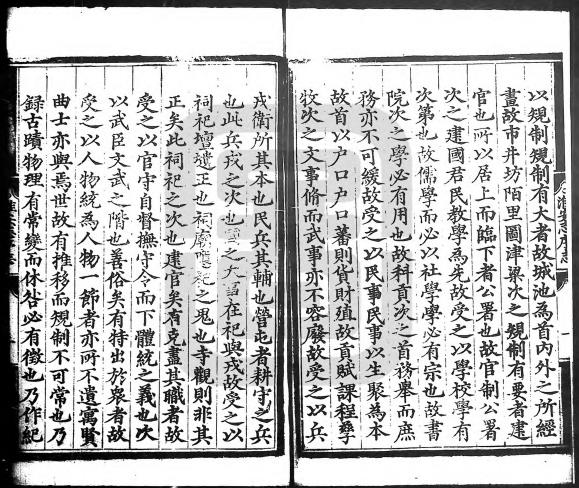 以規制規制有大者故城池為首内外之所經
畫故市井坊陌里圖津梁次之規制有要者建
官也所以居上而臨下者公署也故官制公署
次之建國君民教學為先故受之以學校學有
次第也故儒學而必以社學學必有宗也故書
院次之學必有用也故科貢次之首務舉而庶
務亦不可緩故受之以民事民事以生聚為本
故首以户口户口蕃則貨財殖故貢賦課程孳
牧次之文事脩而武事亦不容廢故受之以兵
戎衛所其本也民兵其輔也營屯者耕守之兵
也此兵戎之次也國之大事在祀與戎故受之以
祠祀壇壝正也祠廟應祀之鬼也寺觀則非其
正矣此祠祀之次也建官矣有克盡其職者故
受之以官守自督撫守令而下體統之義也次
以武臣文武之階也善俗矣有特出於衆者故
受之以人物統為人物一節者亦所不遺寓賢
曲士亦與焉世故有推移而規制不可常也乃
録古蹟物理有常變而休咎必有徵也乃作紀